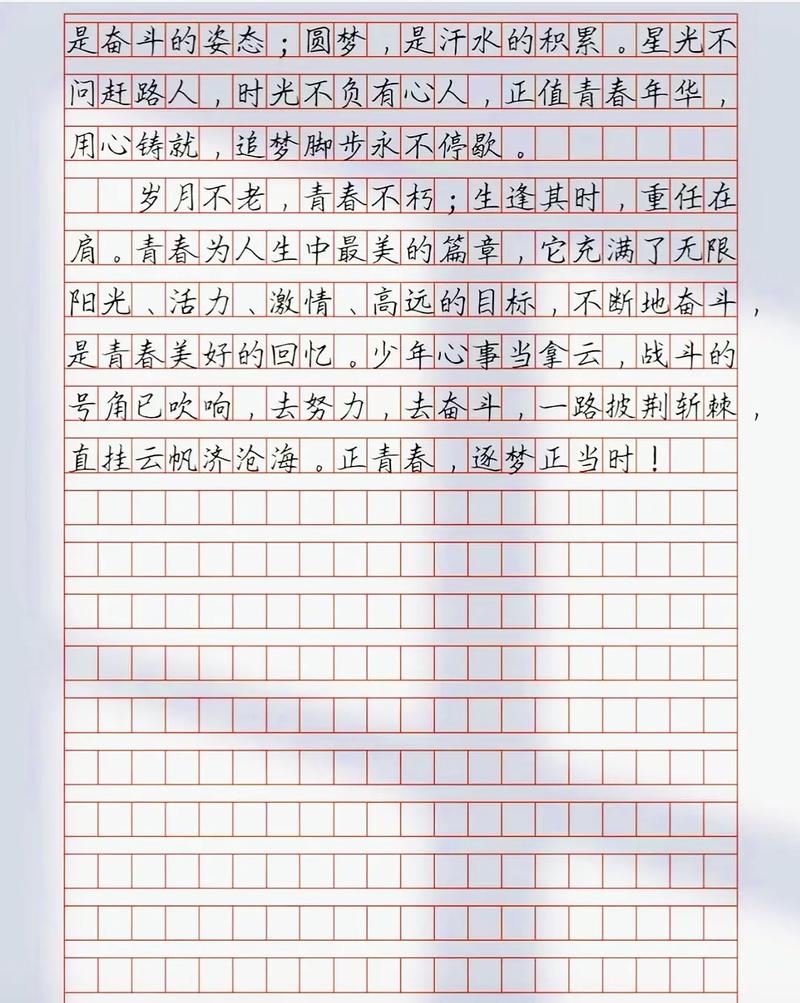 是奋斗的姿态；圆梦，是汗水的积累。星光不
问赶路人，时光不负有心人，正值青春年华，
用心铸就，追梦脚步永不停歇。
岁月不老，青春不朽；生逢其时，重任在
肩。青春为人生中最美的篇章，它充满了无限
阳光、活力、激情、高远的目标，不断地奋斗，
是青春美好的回忆。少年心事当拿云，战斗的
号角已吹响，去努力，去奋斗，一路披荆斩棘，
直挂云帆济沧海。正青春，逐梦正当时！